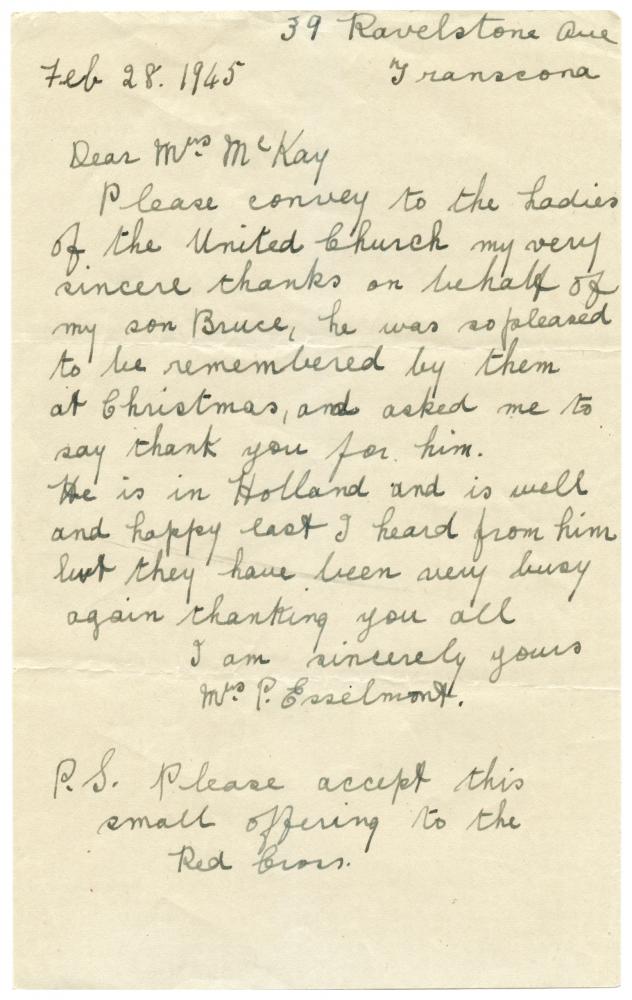 39 Ravelstone Ave
Feb 28. 1945 Transcona
Dear Mrs McKay
Please convey to the Ladies
of the United Church my very
sincere thanks on behalf of
my son Bruce, he was so pleased
to be remembered by them
at Christmas, and asked me to
say thank you for him.
He is in Holland and is well
and happy last I heard from him
but they have been very busy
again thanking you all
I am sincerely yours
Mrs P. Esselmont.
P.S. Please accept this
small offering to the
Red Cross.